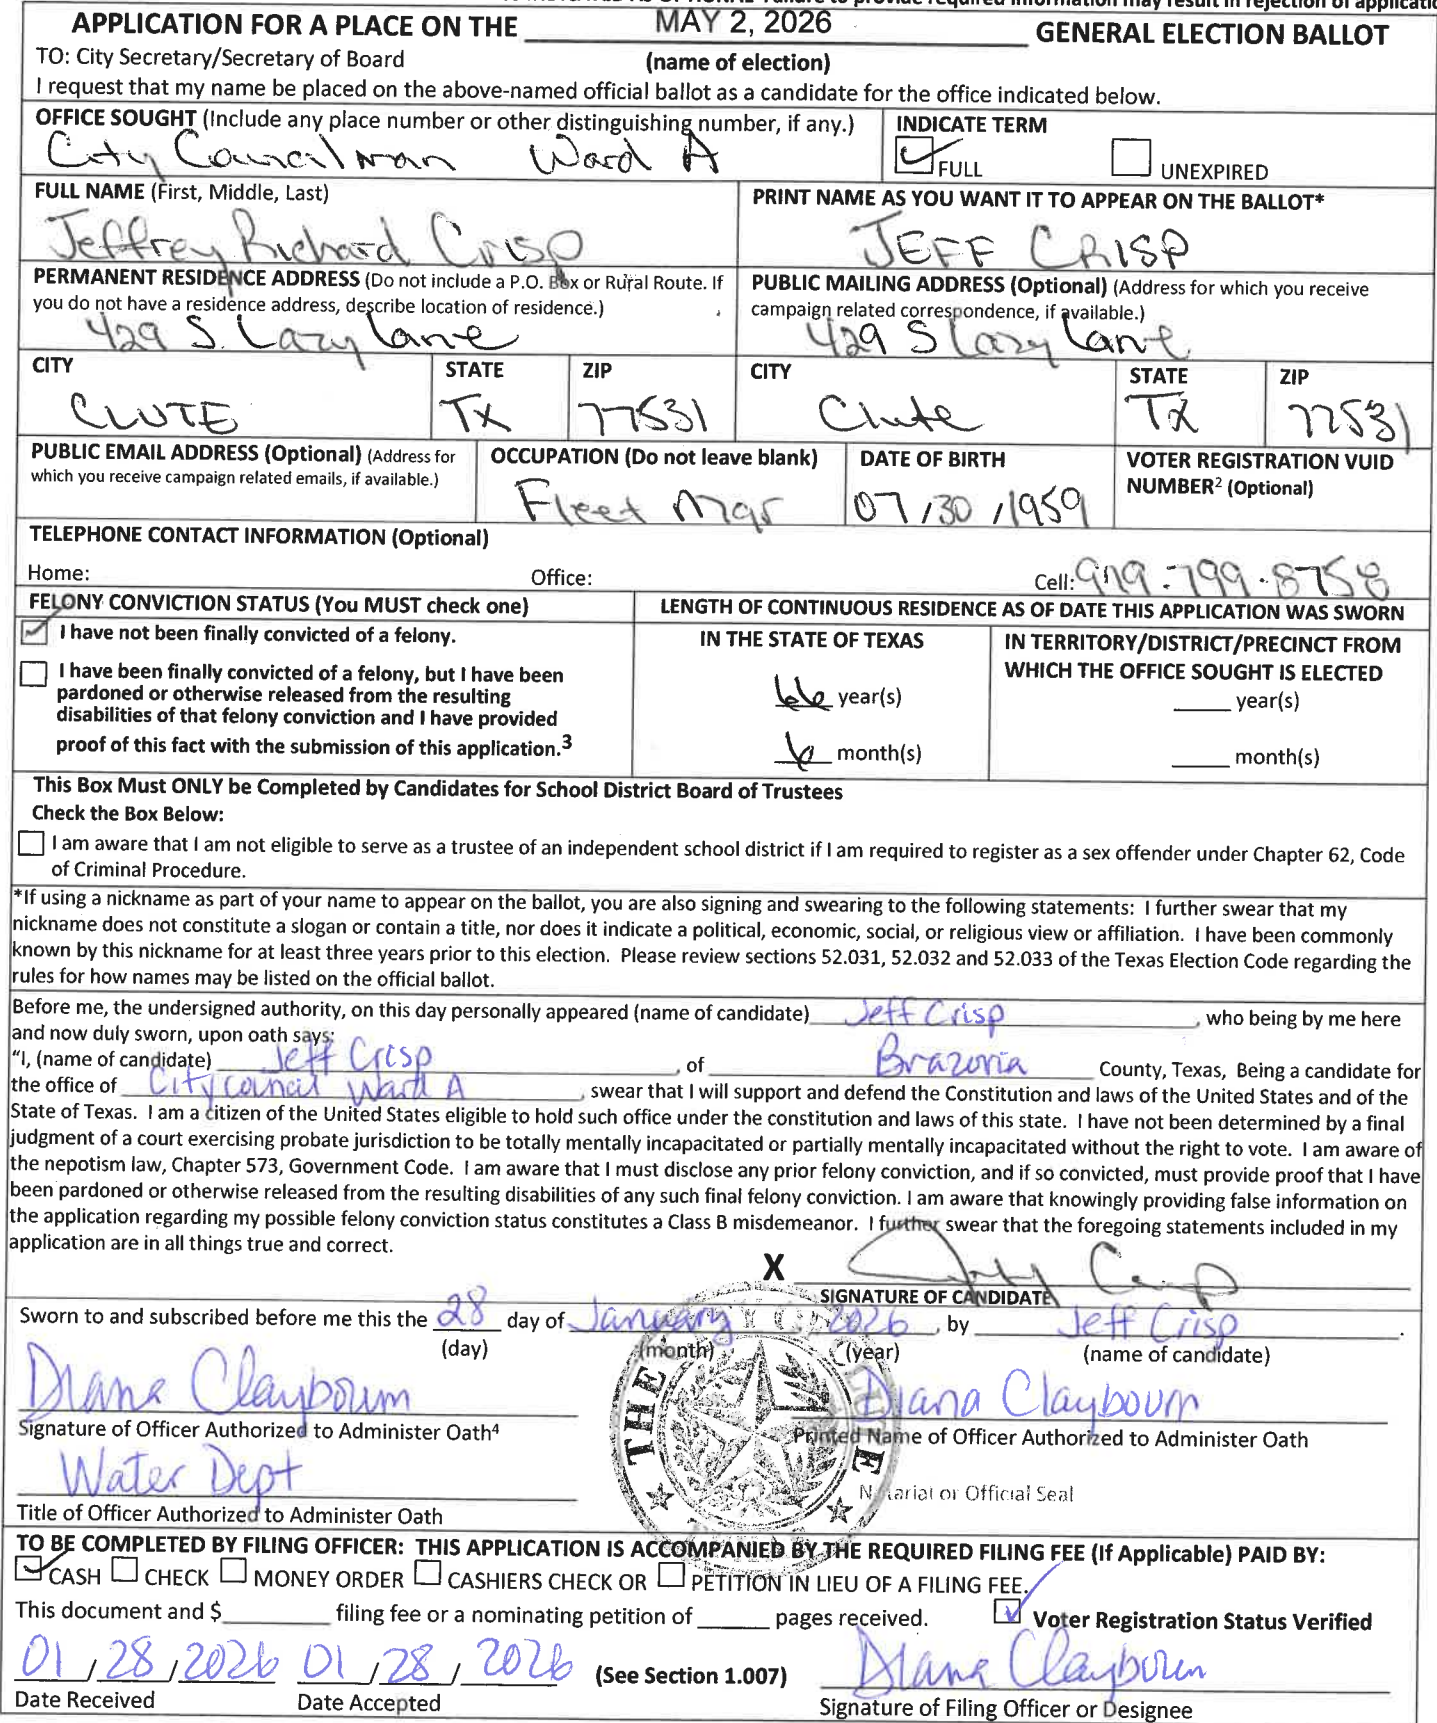 APPLICATION FOR A PLACE ON THE MAY 2, 2026 GENERAL ELECTION BALLOT
TO: City Secretary/Secretary of Board (name of election)
I request that my name be placed on the above-named official ballot as a candidate for the office indicated below.
OFFICE SOUGHT (Include any place number or other distinguishing number, if any.) INDICATE TERM
City Councilman Ward A FULL UNEXPIRED
FULL NAME (First, Middle, Last) PRINT NAME AS YOU WANT IT TO APPEAR ON THE BALLOT*
Jeffrey Richard Crisp JEFF CRISP
PERMANENT RESIDENCE ADDRESS (Do not include a P.O. Box or Rural Route. If PUBLIC MAILING ADDRESS (Optional) (Address for which you receive
you do not have a residence address, describe location of residence.) campaign related correspondence, if available.)
429 S. Lazy Lane 429 S Lazy Lane
CITY STATE ZIP CITY STATE ZIP
CLUTE TX 77531 Clute TX 77531
PUBLIC EMAIL ADDRESS (Optional) (Address for OCCUPATION (Do not leave blank) DATE OF BIRTH VOTER REGISTRATION VUID
which you receive campaign related emails, if available.) NUMBER² (Optional)
Fleet Mgr 07/30/1959
TELEPHONE CONTACT INFORMATION (Optional)
Home: Office: Cell: 979-799-8758
FELONY CONVICTION STATUS (You MUST check one) LENGTH OF CONTINUOUS RESIDENCE AS OF DATE THIS APPLICATION WAS SWORN
I have not been finally convicted of a felony. IN THE STATE OF TEXAS IN TERRITORY/DISTRICT/PRECINCT FROM
WHICH THE OFFICE SOUGHT IS ELECTED
I have been finally convicted of a felony, but I have been
pardoned or otherwise released from the resulting 66 year(s) year(s)
disabilities of that felony conviction and I have provided
proof of this fact with the submission of this application.³ 6 month(s) month(s)
This Box Must ONLY be Completed by Candidates for School District Board of Trustees
Check the Box Below:
I am aware that I am not eligible to serve as a trustee of an independent school district if I am required to register as a sex offender under Chapter 62, Code
of Criminal Procedure.
*If using a nickname as part of your name to appear on the ballot, you are also signing and swearing to the following statements: I further swear that my
nickname does not constitute a slogan or contain a title, nor does it indicate a political, economic, social, or religious view or affiliation. I have been commonly
known by this nickname for at least three years prior to this election. Please review sections 52.031, 52.032 and 52.033 of the Texas Election Code regarding the
rules for how names may be listed on the official ballot.
Before me, the undersigned authority, on this day personally appeared (name of candidate) Jeff Crisp, who being by me here
and now duly sworn, upon oath says:
"I, (name of candidate) Jeff Crisp, of Brazoria County, Texas, Being a candidate for
the office of City council Ward A, swear that I will support and defend the Constitution and laws of the United States and of the
State of Texas. I am a citizen of the United States eligible to hold such office under the constitution and laws of this state. I have not been determined by a final
judgment of a court exercising probate jurisdiction to be totally mentally incapacitated or partially mentally incapacitated without the right to vote. I am aware of
the nepotism law, Chapter 573, Government Code. I am aware that I must disclose any prior felony conviction, and if so convicted, must provide proof that I have
been pardoned or otherwise released from the resulting disabilities of any such final felony conviction. I am aware that knowingly providing false information on
the application regarding my possible felony conviction status constitutes a Class B misdemeanor. I further swear that the foregoing statements included in my
application are in all things true and correct.
X Jeff Crisp
SIGNATURE OF CANDIDATE
Sworn to and subscribed before me this the 28 day of January 2026, by Jeff Crisp.
(day) (month) (year) (name of candidate)
Diana Claybourn Diana Claybourn
Signature of Officer Authorized to Administer Oath⁴ Printed Name of Officer Authorized to Administer Oath
Water Dept
Notarial or Official Seal
Title of Officer Authorized to Administer Oath
THE
TO BE COMPLETED BY FILING OFFICER: THIS APPLICATION IS ACCOMPANIED BY THE REQUIRED FILING FEE (If Applicable) PAID BY:
CASH CHECK MONEY ORDER CASHIERS CHECK OR PETITION IN LIEU OF A FILING FEE.
This document and $ filing fee or a nominating petition of pages received. Voter Registration Status Verified
01/28/2026 01/28/2026 (See Section 1.007) Diana Claybourn
Date Received Date Accepted Signature of Filing Officer or Designee